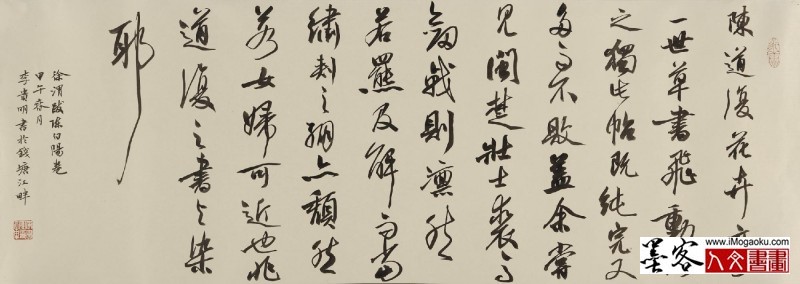 陳道復花卉
一世草書飛動
之獨此帖既純完又
多而不敗蓋余嘗
見閩楚壯士裘馬
劍戟則凜然
若羆及解而當
繡刺之繃亦頹然
若女婦可近也非
道復之書與染
耶
徐渭跋陳白陽卷
甲午春月
李貴明書於錢塘江畔
www.iMogaoku.com
墨客
人文書畫